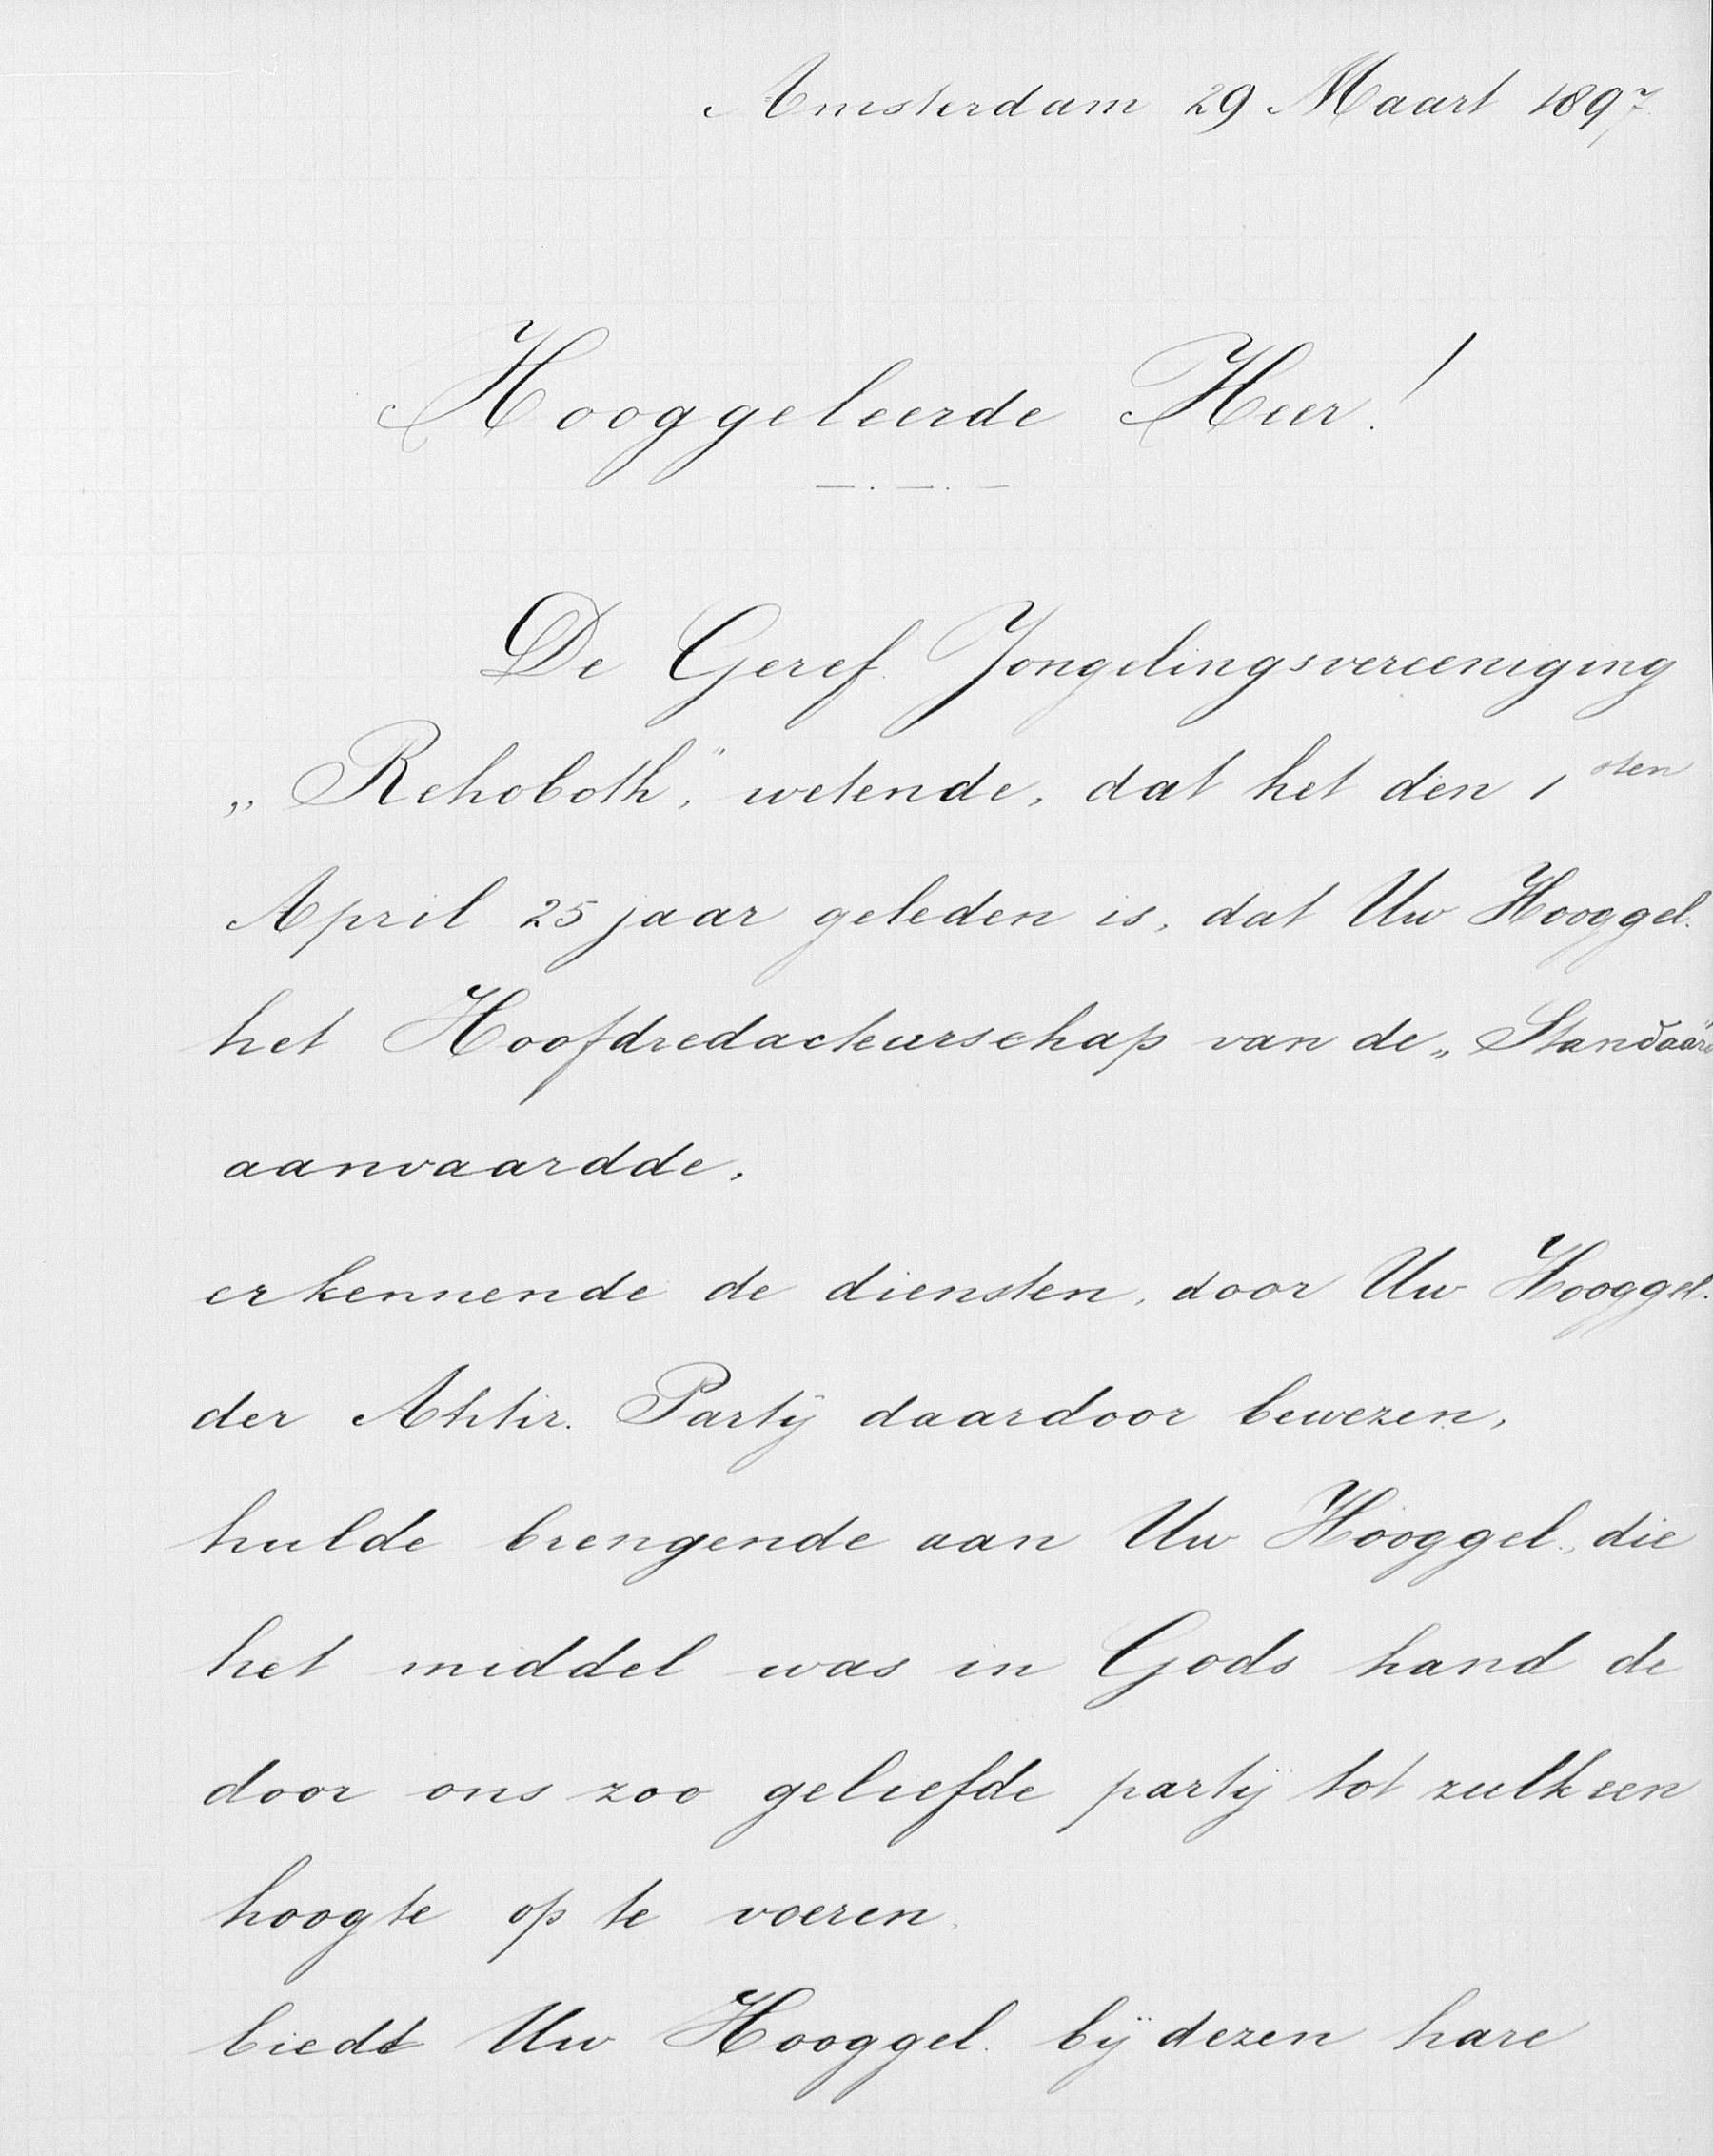 Amsterdam 29 Maart 1897.
Hooggeleerde Heer!
De Geref. Jongelingsvereeniging
„Rehoboth," wetende, dat het den 1sten
April 25 jaar geleden is, dat Uw Hooggel.
het Hoofdredacteurschap van de „Standaard"
aanvaardde,
erkennende de diensten, door Uw Hooggel.
der Antir. Partij daardoor bewezen,
hulde brengende aan Uw Hooggel., die
het middel was in Gods hand de
door ons zoo geliefde partij tot zulk een
hoogte op te voeren,
biedt Uw Hooggel. bij dezen hare